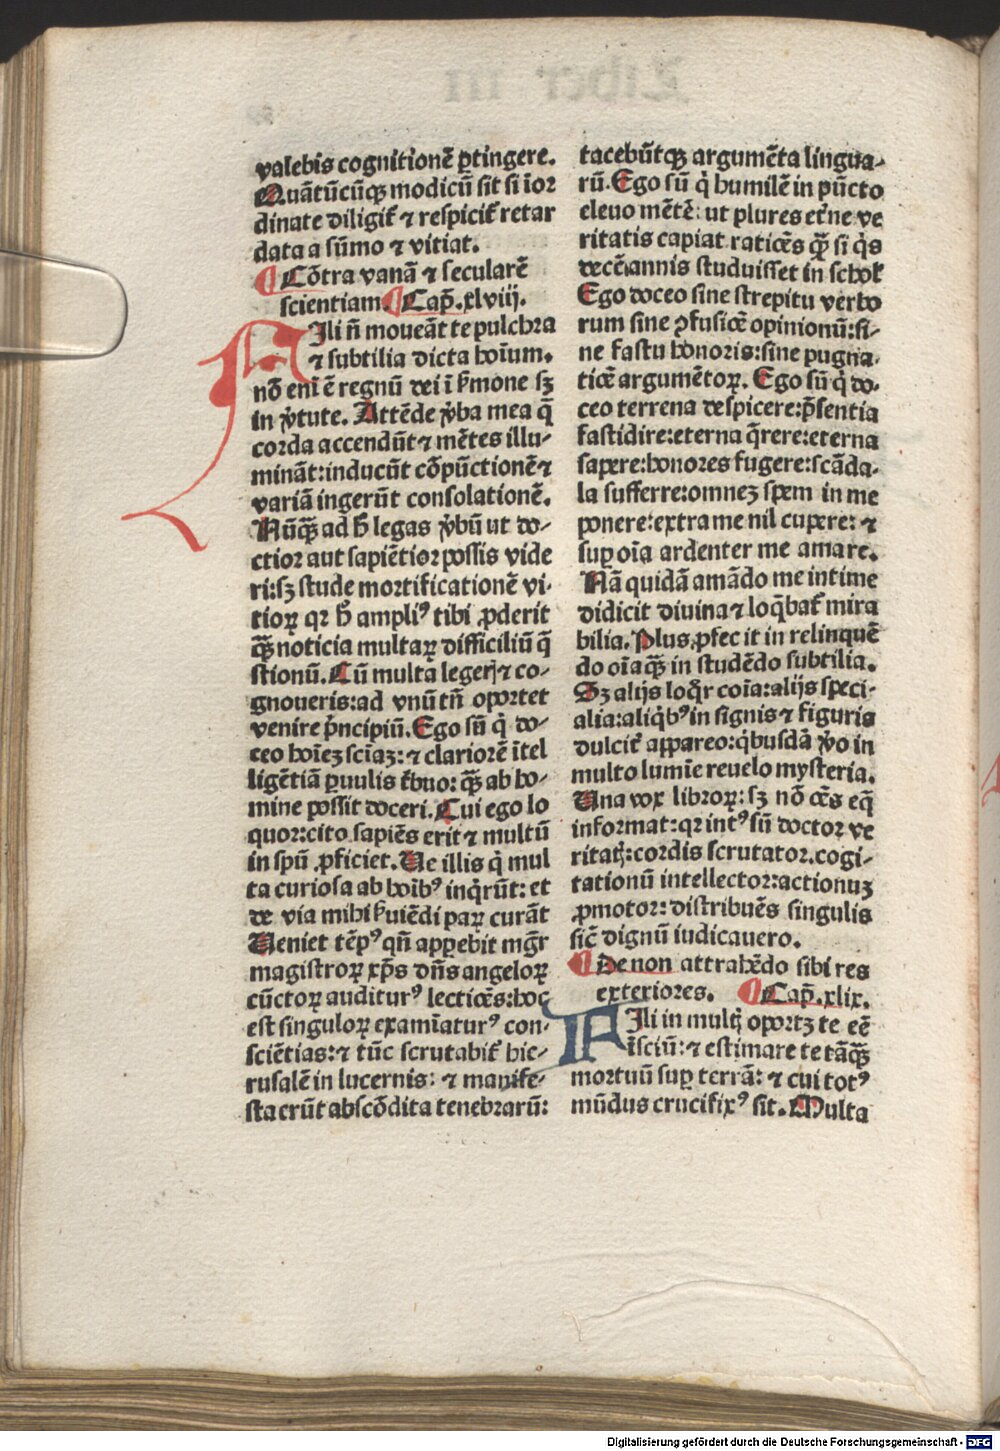 valebis cognitionē ꝑtingere.
Quātūcūqꝫ modicū sit si īor
dinate diligit᷑ ⁊ respicit᷑ retar
data a sūmo ⁊ vitiat.
¶ Cōtra vanā ⁊ secularē
scientiam. ¶ Cap̄. xlviij.
FIli nō moueāt te pulchra
⁊ subtilia dicta hoīum.
nō enī ē regnū dei ī ẜmone sꝫ
in v̓tute. Attēde v̓ba mea q̄
corda accendūt ⁊ mētes illu-
mināt: inducūt cōpūctionē ⁊
variā ingerūt consolationē.
Nūqꝫ ad h̄ legas v̓bū ut do-
ctior aut sapiētior possis vide
ri: sꝫ stude mortificationē vi-
tioꝝ qꝛ h̄ ampliꝰ tibi ꝓderit
qꝫ̄ noticia multaꝝ difficiliū q̄
stionū. Cū multa legerꝭ ⁊ co-
gnoueris: ad vnū tn̄ oportet
venire p̄ncipiū. Ego sū q̓ do-
ceo hoīeꝫ scīaꝫ: ⁊ clariorē ītel
ligētiā ꝑuulis t᷑buo: qꝫ̄ ab ho-
mine possit doceri. Cui ego lo
quor: cito sapiēs erit ⁊ multū
in spū ꝓficiet. Ue illis q̓ mul
ta curiosa ab hoībꝰ inq̓rūt: et
de via mihi ẜuiēdi paꝝ curāt
Ueniet tēpꝰ qn̄ apꝑebit mḡr
magistroꝝ xp̄s dn̄s angeloꝝ
cūctoꝝ auditurꝰ lectiōes: hoc
est singuloꝝ examīaturꝰ con-
sciētias: ⁊ tūc scrutabit᷑ hie-
rusalē in lucernis: ⁊ manife-
sta erūt abscōdita tenebrarū:
tacebūtqꝫ argumēta lingua-
rū. Ego sū q̓ humilē in pūcto
eleuo mētē: ut plures et᷑ne ve
ritatis capiat ratiōes qꝫ̄ si q̓s
decē annis studuisset in schol̓
Ego doceo sine strepitu verbo
rum sine ꝯfusiōe opinionū: si-
ne fastu honoris: sine pugna-
tiōe argumētoꝝ. Ego sū q̓ do-
ceo terrena despicere: p̄sentia
fastidire: eterna q̄rere: eterna
sapere: honores fugere: scāda-
la sufferre: omneꝫ spem in me
ponere: extra me nil cupere: ⁊
suꝑ oīa ardenter me amare.
Nā quidā amādo me intime
didicit diuina ⁊ loq̄bat᷑ mira
bilia. Plus ꝓfecit in relinquē
do oīa qꝫ̄ in studēdo subtilia.
Sꝫ alijs loq̓r coīa: alijs speci-
alia: aliq̓bꝰ in signis ⁊ figuris
dulcit᷑ appareo: q̓busdā v̓o in
multo lumīe reuelo mysteria.
Una vox libroꝝ: sꝫ nō oēs eq̄
informat: qꝛ intꝰ sū doctor ve
ritatꝭ: cordis scrutator. cogi-
tationū intellector: actionuꝫ
ꝓmotor: distribuēs singulis
sic̄ dignū iudicauero.
¶ De non attrahēdo sibi res
exteriores. ¶ Cap̄. xlix.
FIli in multꝭ oportꝫ te eē
īsciū: ⁊ estimare te tāqꝫ̄
mortuū suꝑ terrā: ⁊ cui totꝰ
mūdus crucifixꝰ sit. Multa
Digitalisierung gefördert durch die Deutsche Forschungsgemeinschaft - DFG